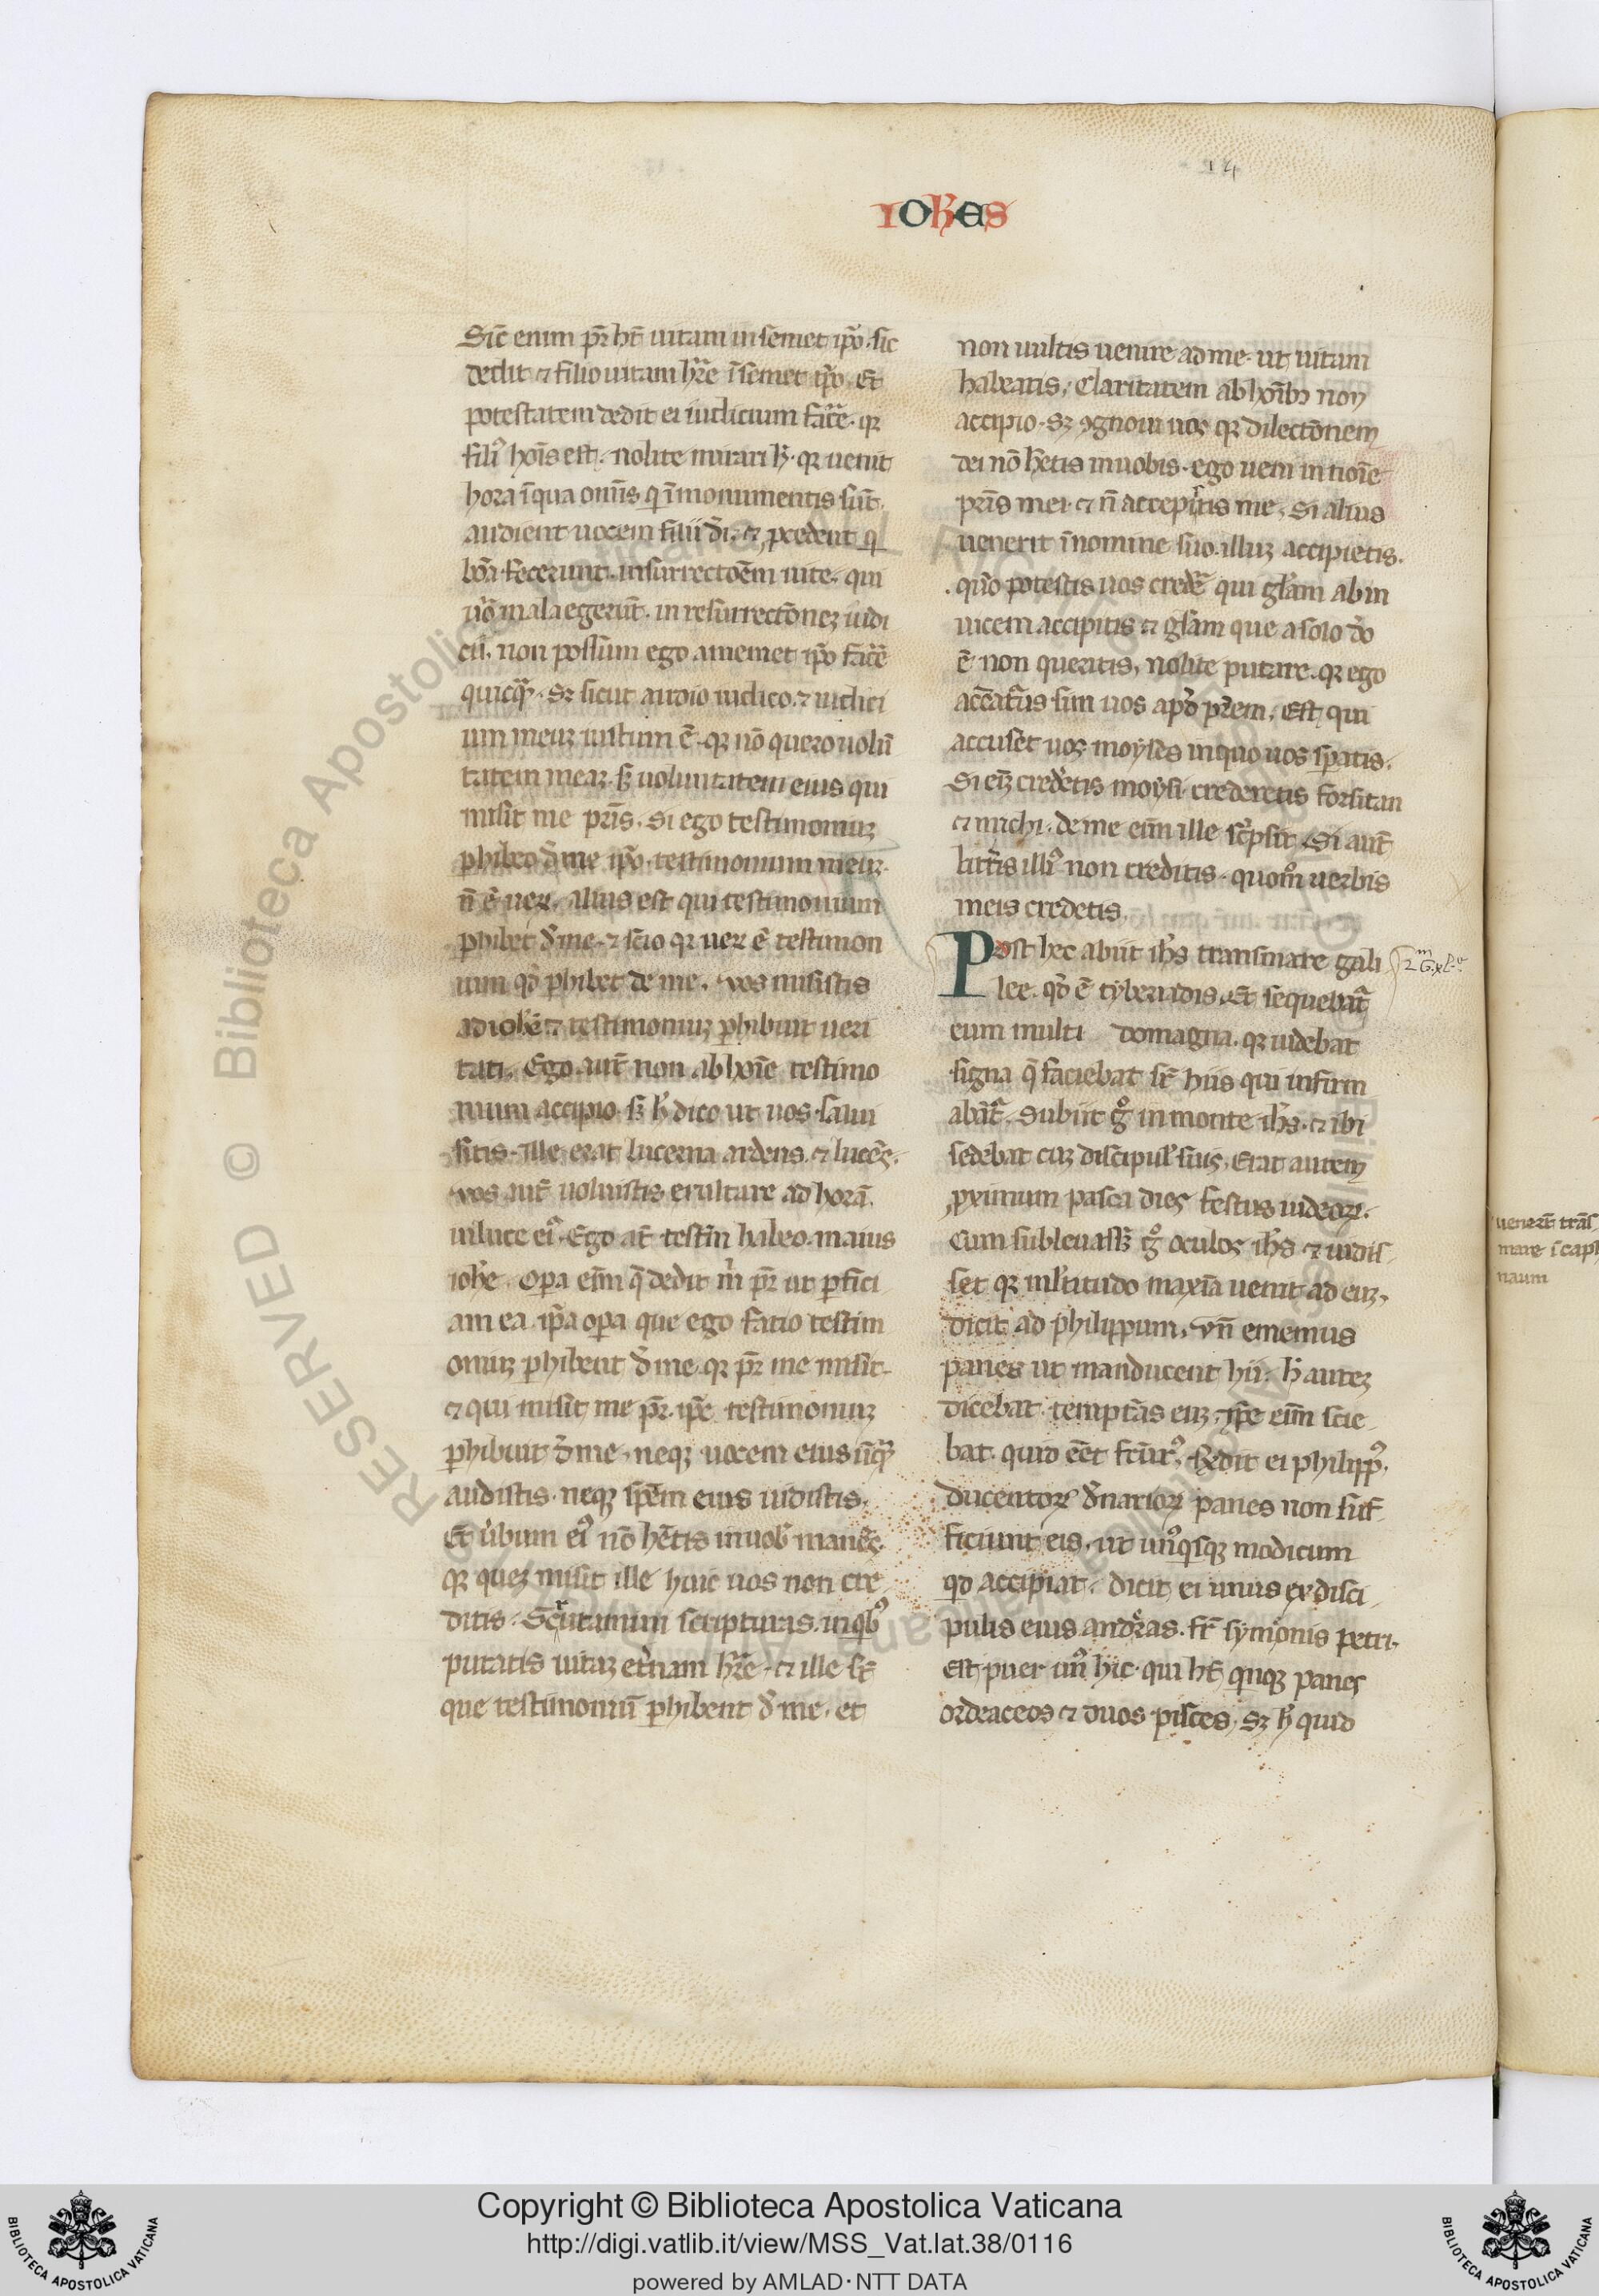 14
IOHES
Sic̄ enim pr̄ ht̄ uitam in semet ip̄o. sic
dedit ⁊ filio uitam hr̄e ī semet ip̄o. Et
potestatem dedit ei iudicium facr̄e. qꝛ
fili᾿ hoīs est. nolite mirari h̄. qꝛ uenit
hora ī qua omn̄s q̄ ī monumentis sūt
audient uocem filii dī. ⁊ ꝓcedent q̄
bōa fecerunt. in surrectōem uite. qui
ūo mala egerūt. in resurrectōnez iudi
cii. non possum ego a memet ip̄o facr̄e
quicq̄ᷓ. sꝫ sicut audio iudico. ⁊ iudici
um meuz iustum ē. qꝛ nō quero uolū
tatem meaz. sꝫ uoluntatem eius qui
misit me pr̄is. Si ego testimoniuz
ꝑhibeo d̄ me ip̄o. testimonium meuz
n̄ ē ueꝝ. alius est qui testimonium
ꝑhibet d̄ me. ⁊ scio qꝛ ueꝝ ē testimon
ium qd̄ ꝑhibet de me. vos misistis
ad ioh̄ē ⁊ testimoniuz ꝑhibuit ueri
tati. Ego aut̄ non ab hoīe testimo
nium accipio. sꝫ h̄ dico ut uos salui
sitis. Ille erat lucerna ardens. ⁊ lucēs.
vos aut̄ uoluistis exultare ad horā
in luce ei᾿. Ego at̄ testīm habeo. maius
ioh̄e. Opa eīm q̄ dedit m̄ pr̄ ut ꝑfici
am ea. ip̄a opa que ego facio testim
oniuz ꝑhibent d̄ me. qꝛ pr̄ me misit.
⁊ qui misit me pr̄. ip̄e testimoniuz
ꝑhibuit d̄ me. neqꝫ uocem eius ūq̄ᷓ
audistis. neqꝫ sp̄em eius uidistis.
Et ūbum ei᾿ nō hētis in uob̄ manēs.
qꝛ quez misit ille huic uos non cre
ditis. Scrutamini scripturas. in qb᾿
putatis uitaz et̄nam hr̄e. ⁊ ille st̄
que testimoniū ꝑhibent d̄ me. et
non uultis uenire ad me. ut uitam
habeatis. Claritatem ab hoīb᾿ non
accipio. sꝫ ꝯgnoui uos qꝛ dilectōnem
dei nō hētis in uobis. ego ueni in noīe
pr̄is mei. ⁊ n̄ accepistis me. Si alius
uenerit ī nomine suo. illuz accipietis.
quō potestis uos credr̄e qui gl̄am ab in
uicem accipitis ⁊ gl̄am que a solo dō
ē non queritis. nolite putare. qꝛ ego
accūaturus sim uos apd̄ pr̄em. Est qui
accuset uos moyses in quo uos sꝑatis.
Si eīz credetis moysi. crederetis forsitan
⁊ michi. de me eīm ille scr̄psit. Si aut̄
litt̄is illi᾿ non creditis. quomō uerbis
meis credetis.
Post hec abiit ih̄s trans mare gali
lee. qd̄ ē tyberiadis. Et sequebat᷑
eum multi domagna. qꝛ uidebat
signa q̄ faciebat sr̄ hiis qui infirm
abāt᷑. Subiit gͦ in monte ih̄s. ⁊ ibi
sedebat cuz discipul̄ suis. Erat autem
ꝓximum pasca dies festus iudeoꝝ.
Cum subleuasꝫ gͦ oculos ih̄s ⁊ uidis
set qꝛ ml̄titudo maxīa uenit ad euz.
dicit ad philippum. vn̄ ememus
panes ut manducent hii. h̄ autez
dicebat temptās euz. ip̄e eīm scie
bat. quid eēt fctūr᾿. Rn̄dit ei philipp᾿.
ducentoꝝ d̄narioꝝ panes non suf
ficiunt eis. ut un᾿qsqꝫ modicum
qd accipiat. dicit ei unus ex disci
pulis eius andreas. fr̄ symonis petri.
Est puer un᾿ hic. qui ht̄ qinqꝫ panes
ordeaceos ⁊ duos pisces. sꝫ h̄ quid
uenerūt trās
mare ī caph
naum
RESERVED © Biblioteca Apostolica Vaticana
Copyright © Biblioteca Apostolica Vaticana
http://digi.vatlib.it/view/MSS_Vat.lat.38/0116
powered by AMLAD·NTT DATA
BIBLIOTECA APOSTOLICA VATICANA
BIBLIOTECA APOSTOLICA VATICANA